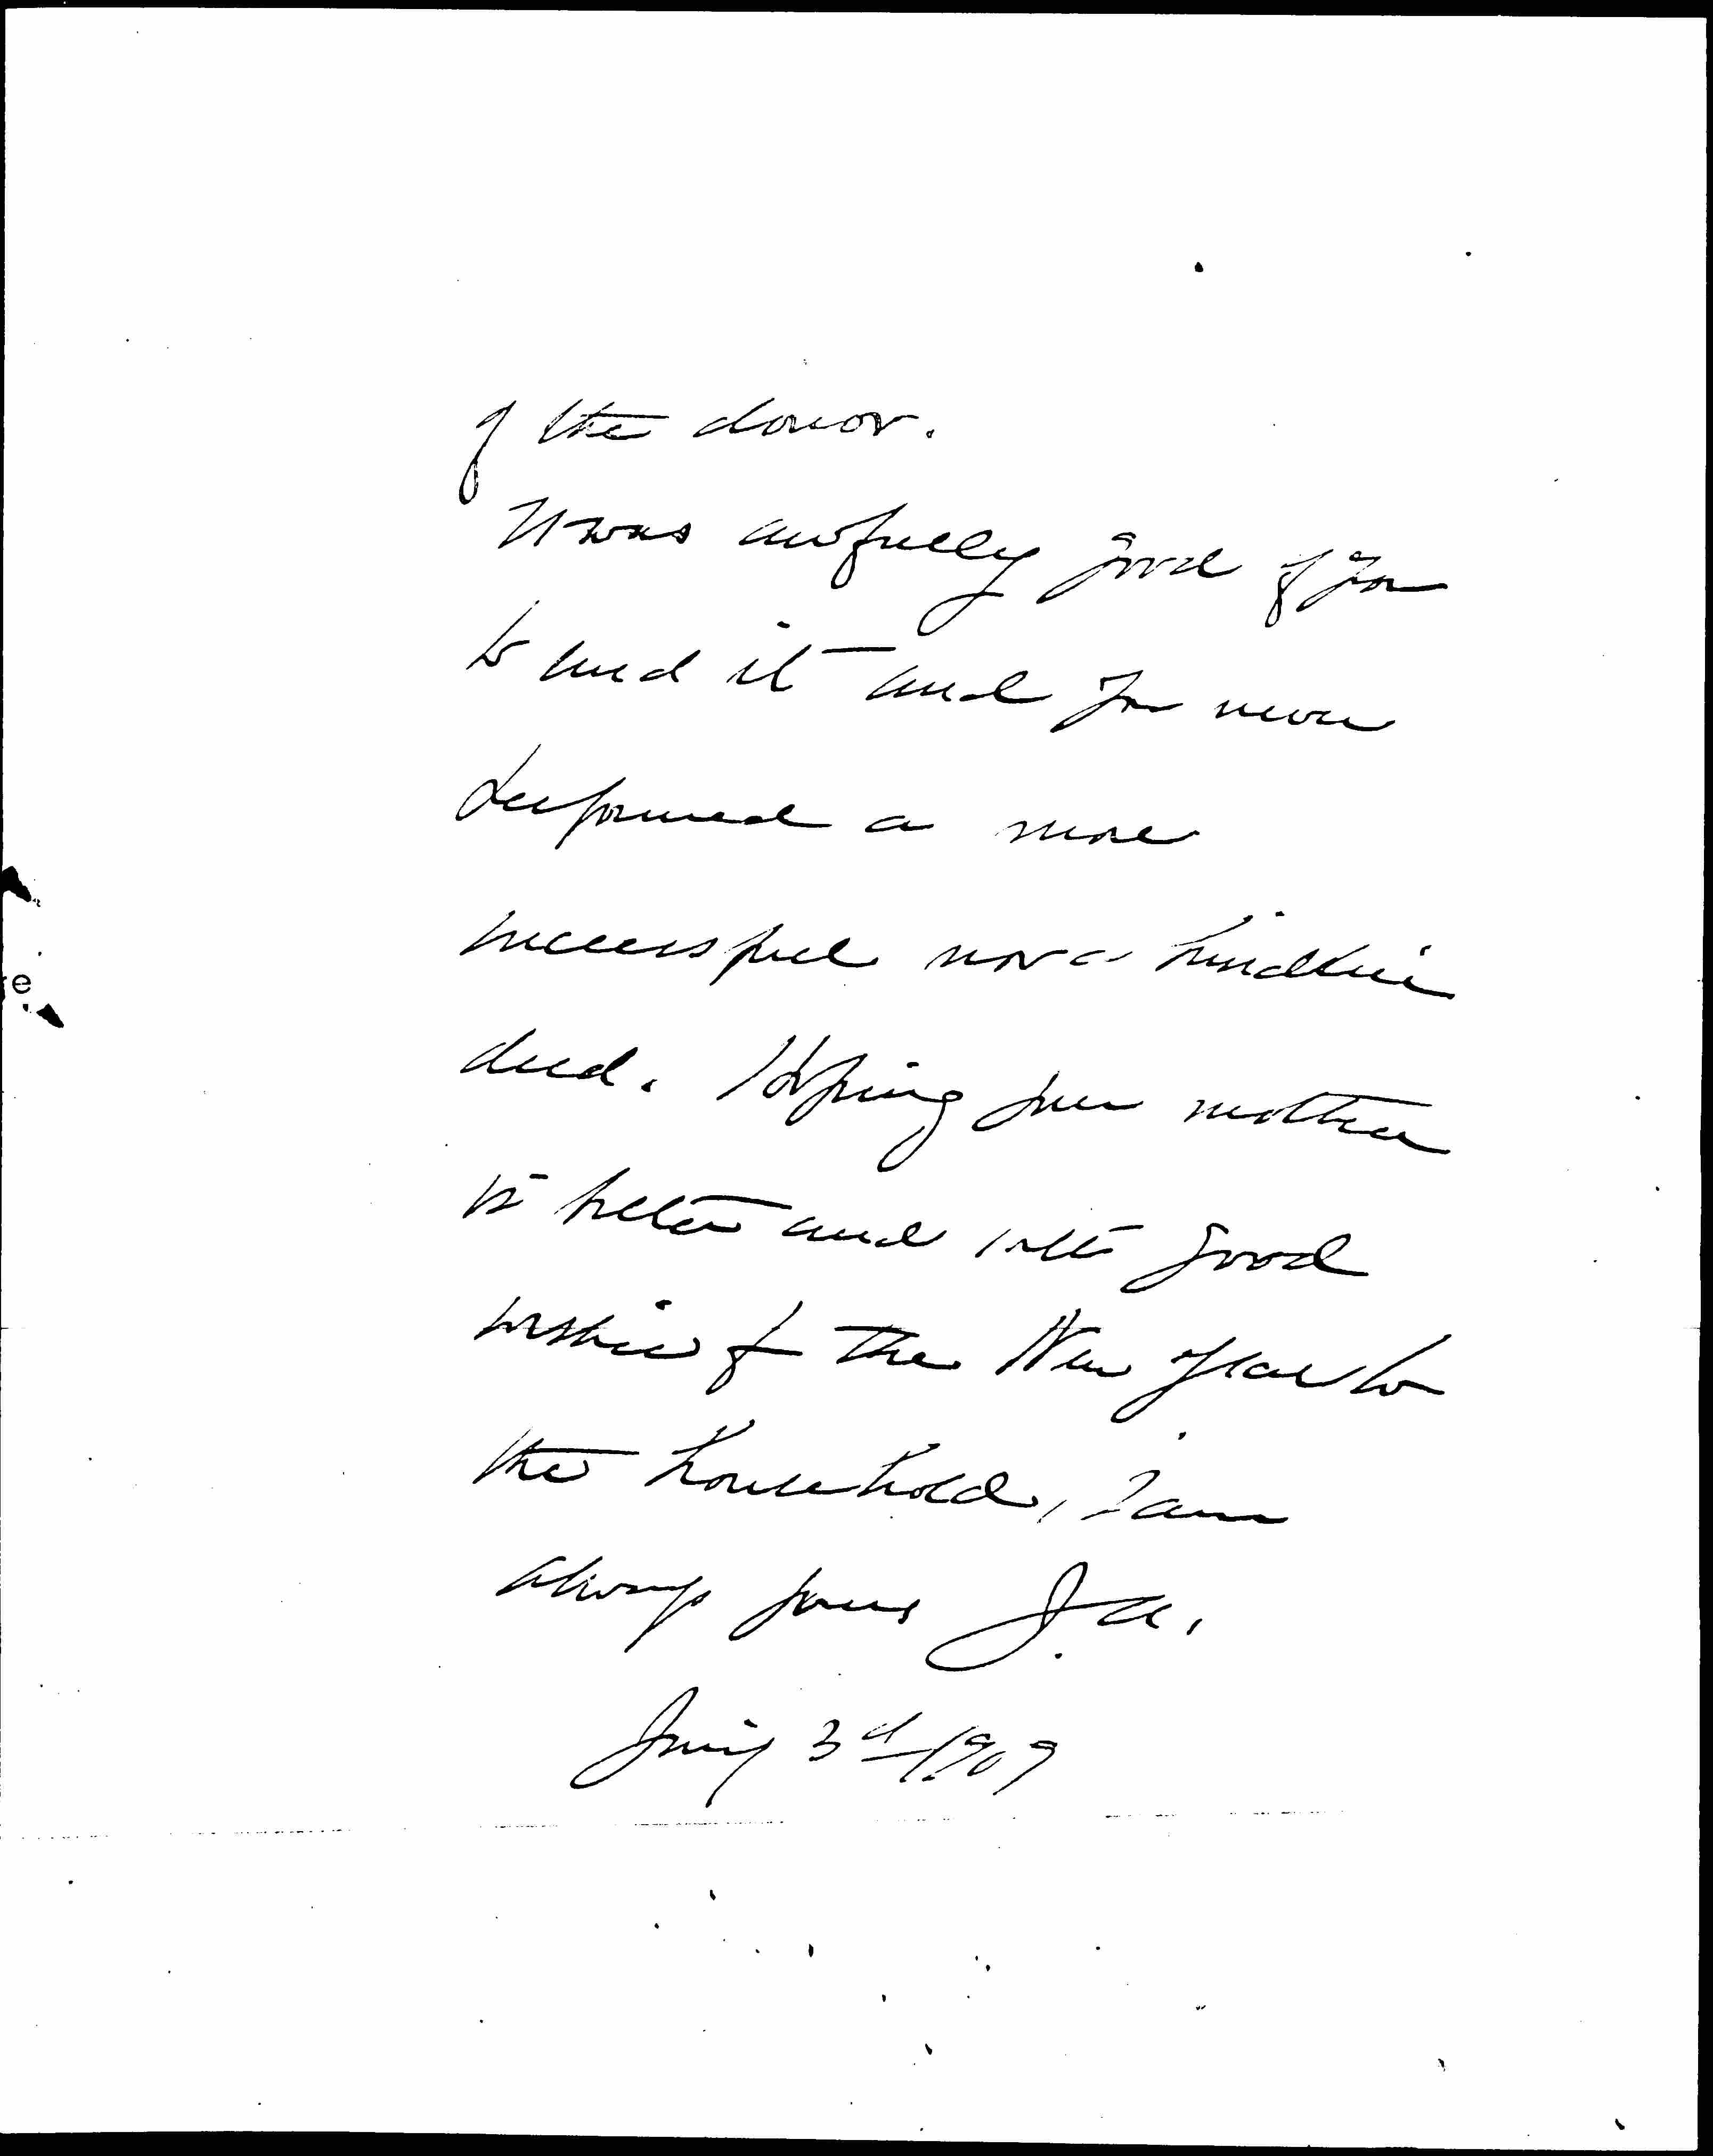 of the donor.
It was awfully good of you
to send it and you never
performed a more
successful nor a kindlier
deed. Hoping your mother
is better and with good
wishes for the New Year to
the household, I am
always yours J. A.
Jan'y 3d 1909
e